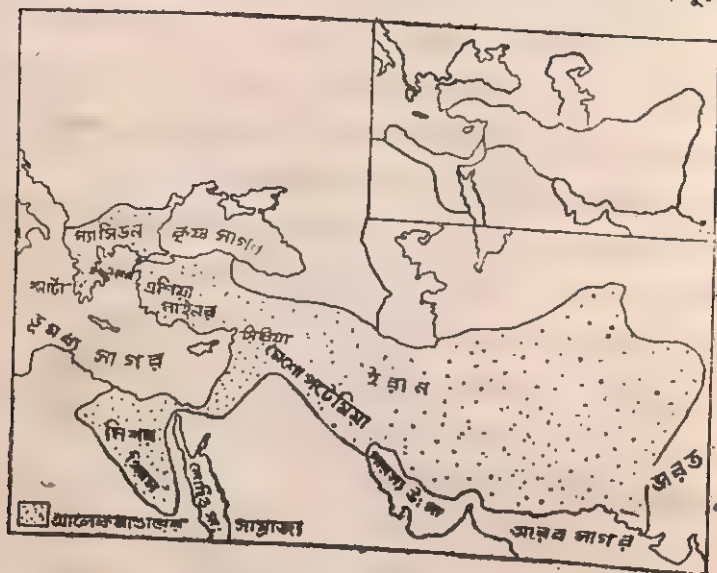 ম্যাসিডন
কৃষ্ণ সাগর
স্পার্টা
এশিয়া
মাইনর
ভূমধ্য সাগর
সিরিয়া
মেসোপটেমিয়া
ইরান
মিশর
লোহিত সা.
পারস্য উঃ সাঃ
আরব সাগর
ভারত
আলেকজাণ্ডারের সাম্রাজ্য